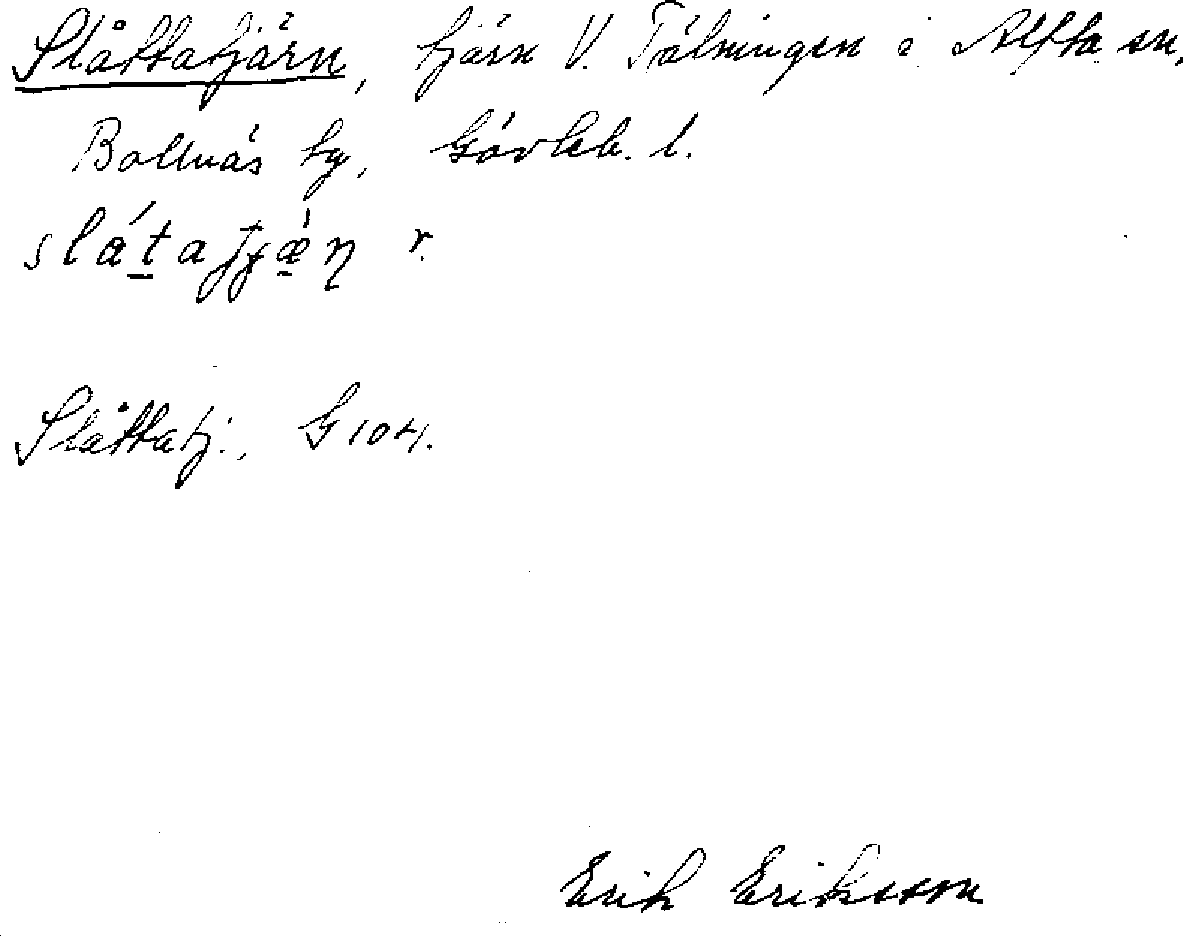 Slåttatjärn, tjärn V. Tälningen i Alfta sn,
Bollnäs tg, Gävleb. l.
r.
Slåttatj., G 104.
Erik Eriksson